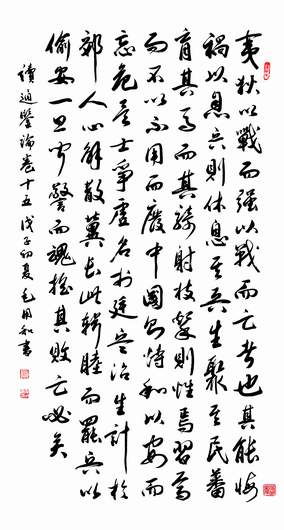 夷狄以戰而强以戰而亡者也其能悔
禍以息兵則休息其兵生聚其民蕃
育其馬而其騎射技擊則性焉習焉
而不以不用而廢中國則恃和以安而
忘危矣士爭虛名於廷兵治生計於
郊人心解散冀長此輯睦而罷兵以
偷安一旦聞警而魂搖其敗亡必矣
讀通鑒論卷十五戊子初夏毛用和書